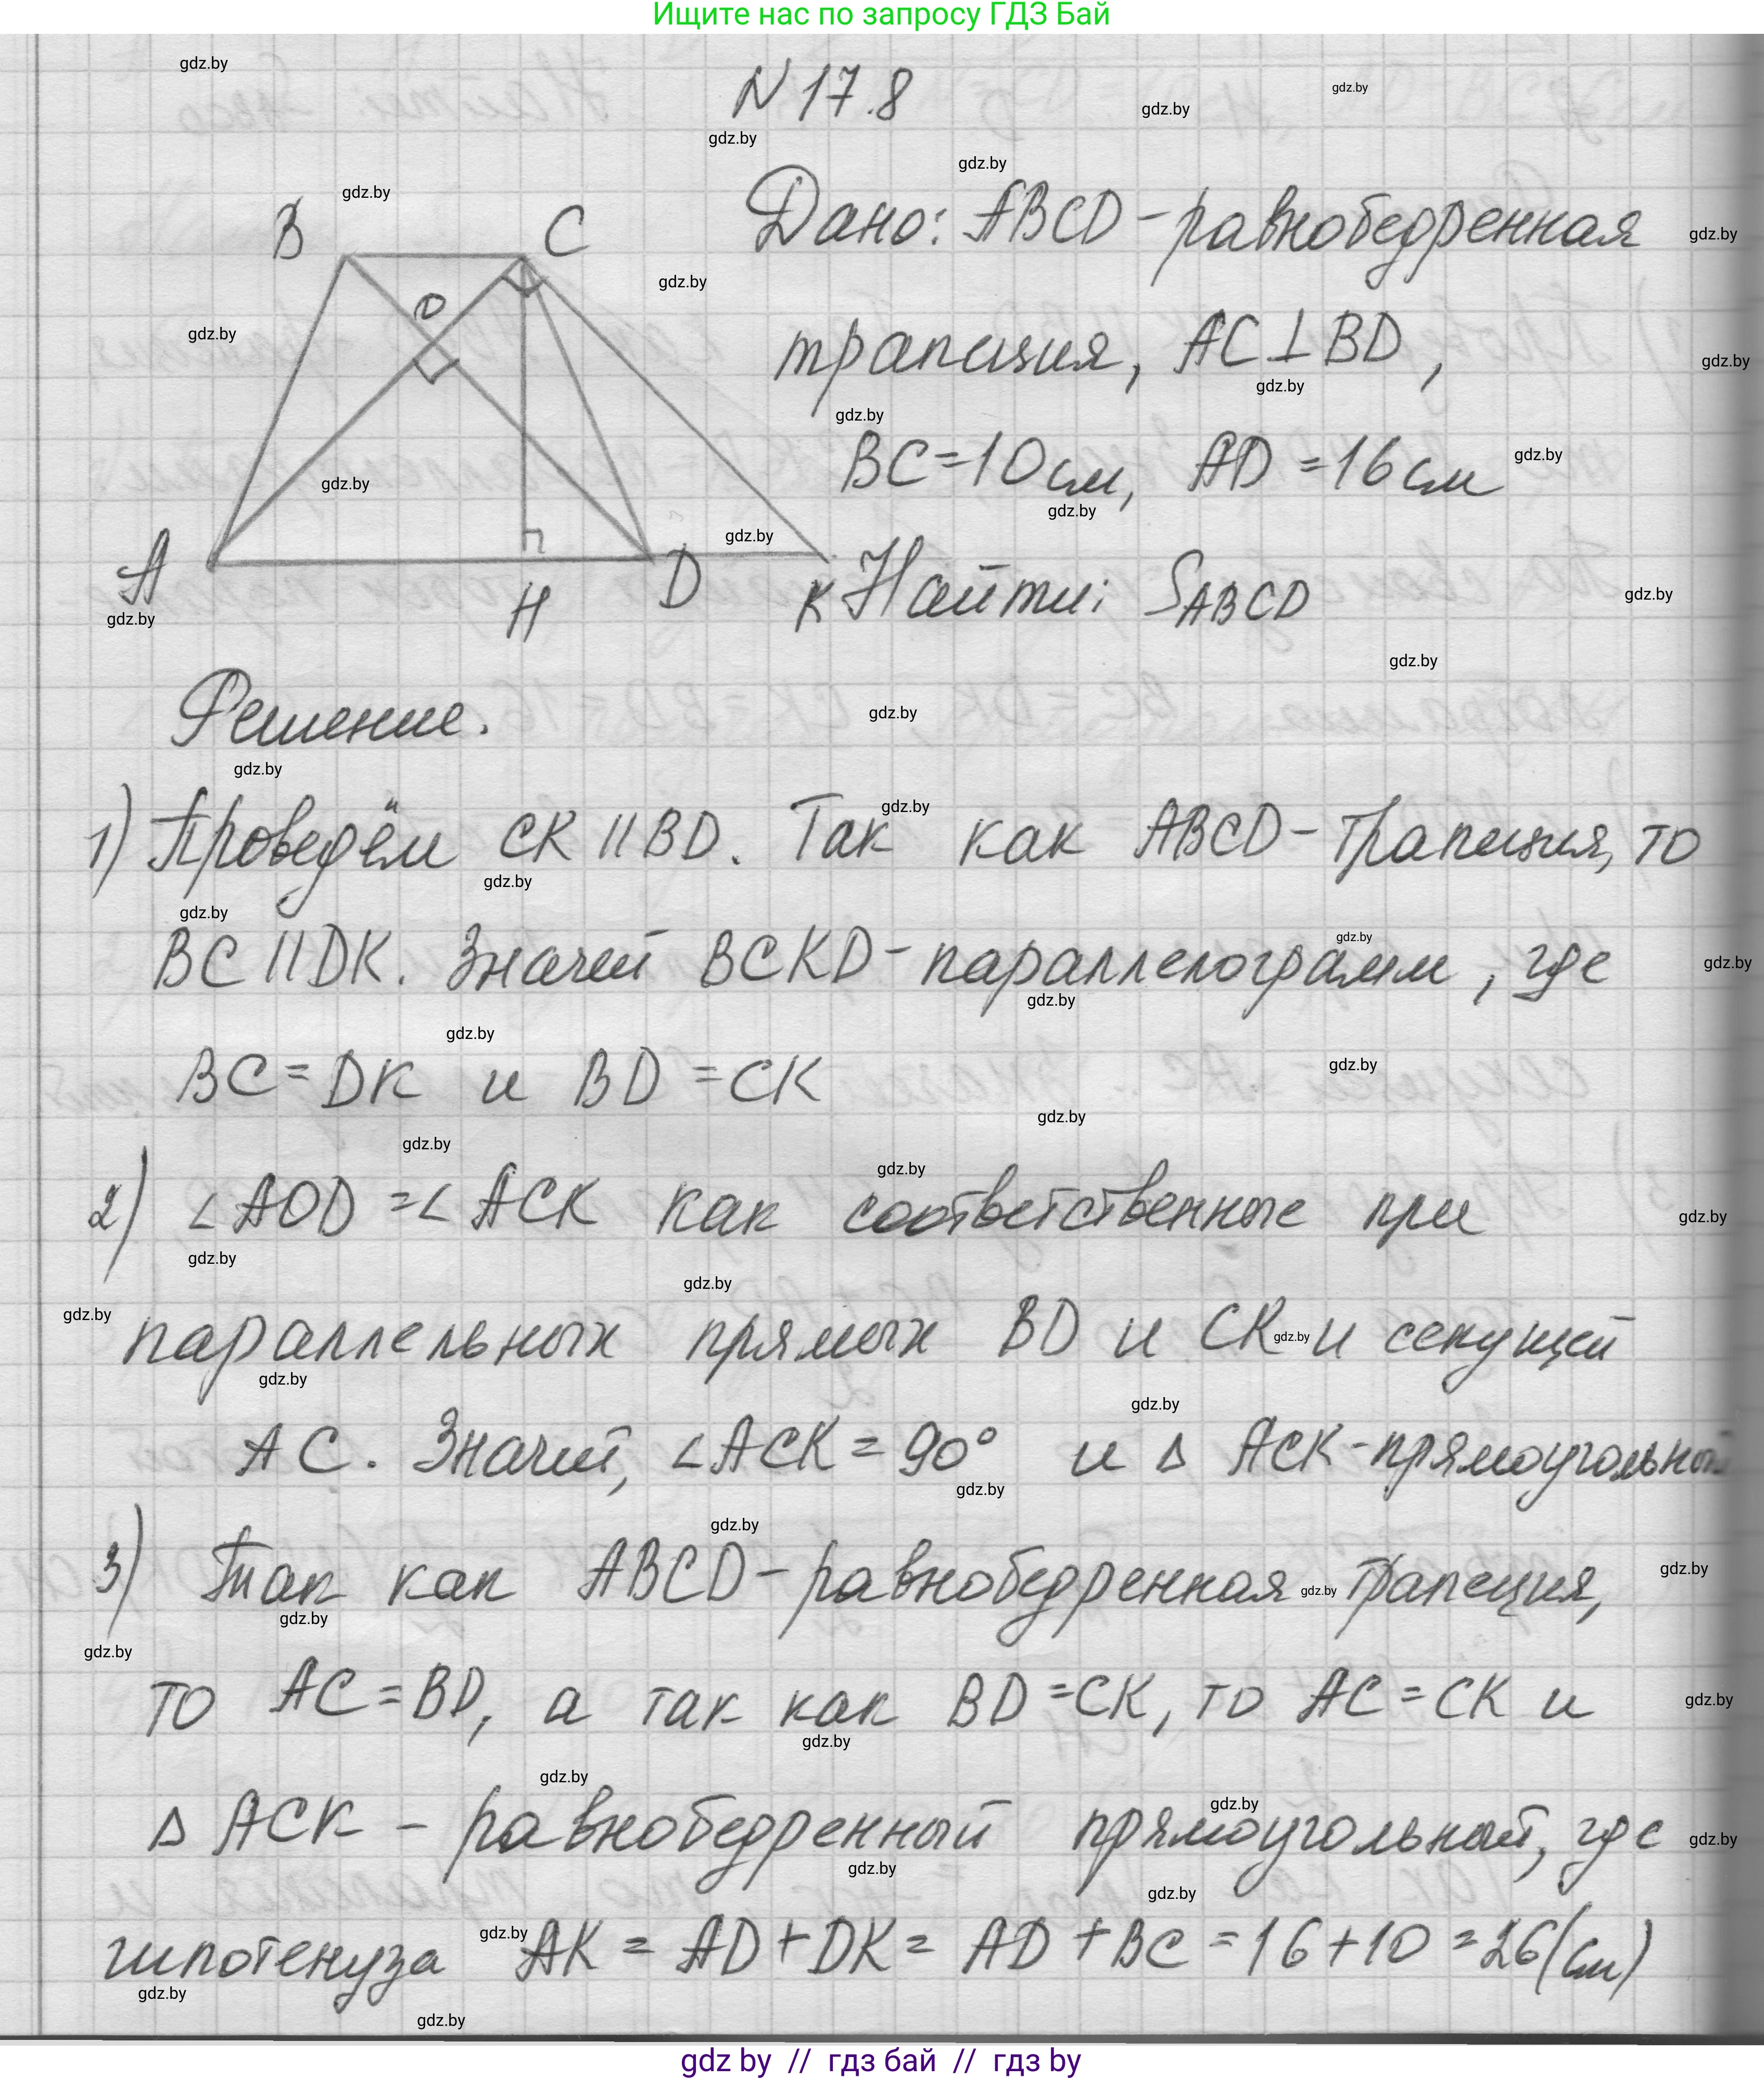 Ищите нас по запросу ГДЗ Бай
N 17.8
Дано: ABCD - равнобедренная
трапеция, AC⊥BD,
BC=10см, AD=16см
Найти: SABCD
B
C
O
A
H
D
K
Решение.
1) Проведём CK || BD. Так как ABCD - трапеция, то
BC || DK. Значит BCKD - параллелограмм, где
BC = DK и BD = CK
2) ∠AOD = ∠ACK как соответственные при
параллельных прямых BD и CK и секущей
AC. Значит, ∠ACK = 90° и Δ ACK - прямоугольный
3) Так как ABCD - равнобедренная трапеция,
то AC = BD, а так как BD = CK, то AC = CK и
Δ ACK - равнобедренный прямоугольный, где
гипотенуза AK = AD + DK = AD + BC = 16 + 10 = 26 (см)
gdz by // гдз бай // гдз by